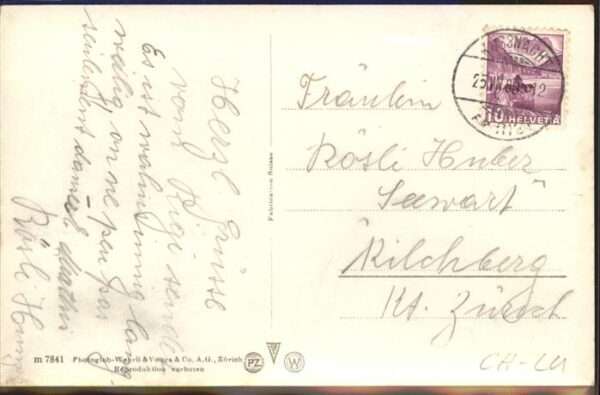 Herzl. Grüsse
vom Rigi sendet
Es ist wahnsinnig lang-
weilig on ne peu pas
seulement danser,
Rösli
Fräulein
Rösli Huber
"Seewart"
Kilchberg
Kt. Zürich
KÜSSNACHT
10 HELVETIA
Fabrication Suisse
m 7841 Photoglob-Wehrli & Vouga & Co. A.G., Zürich
Reproduktion verboten
PZ
W
CH-LU